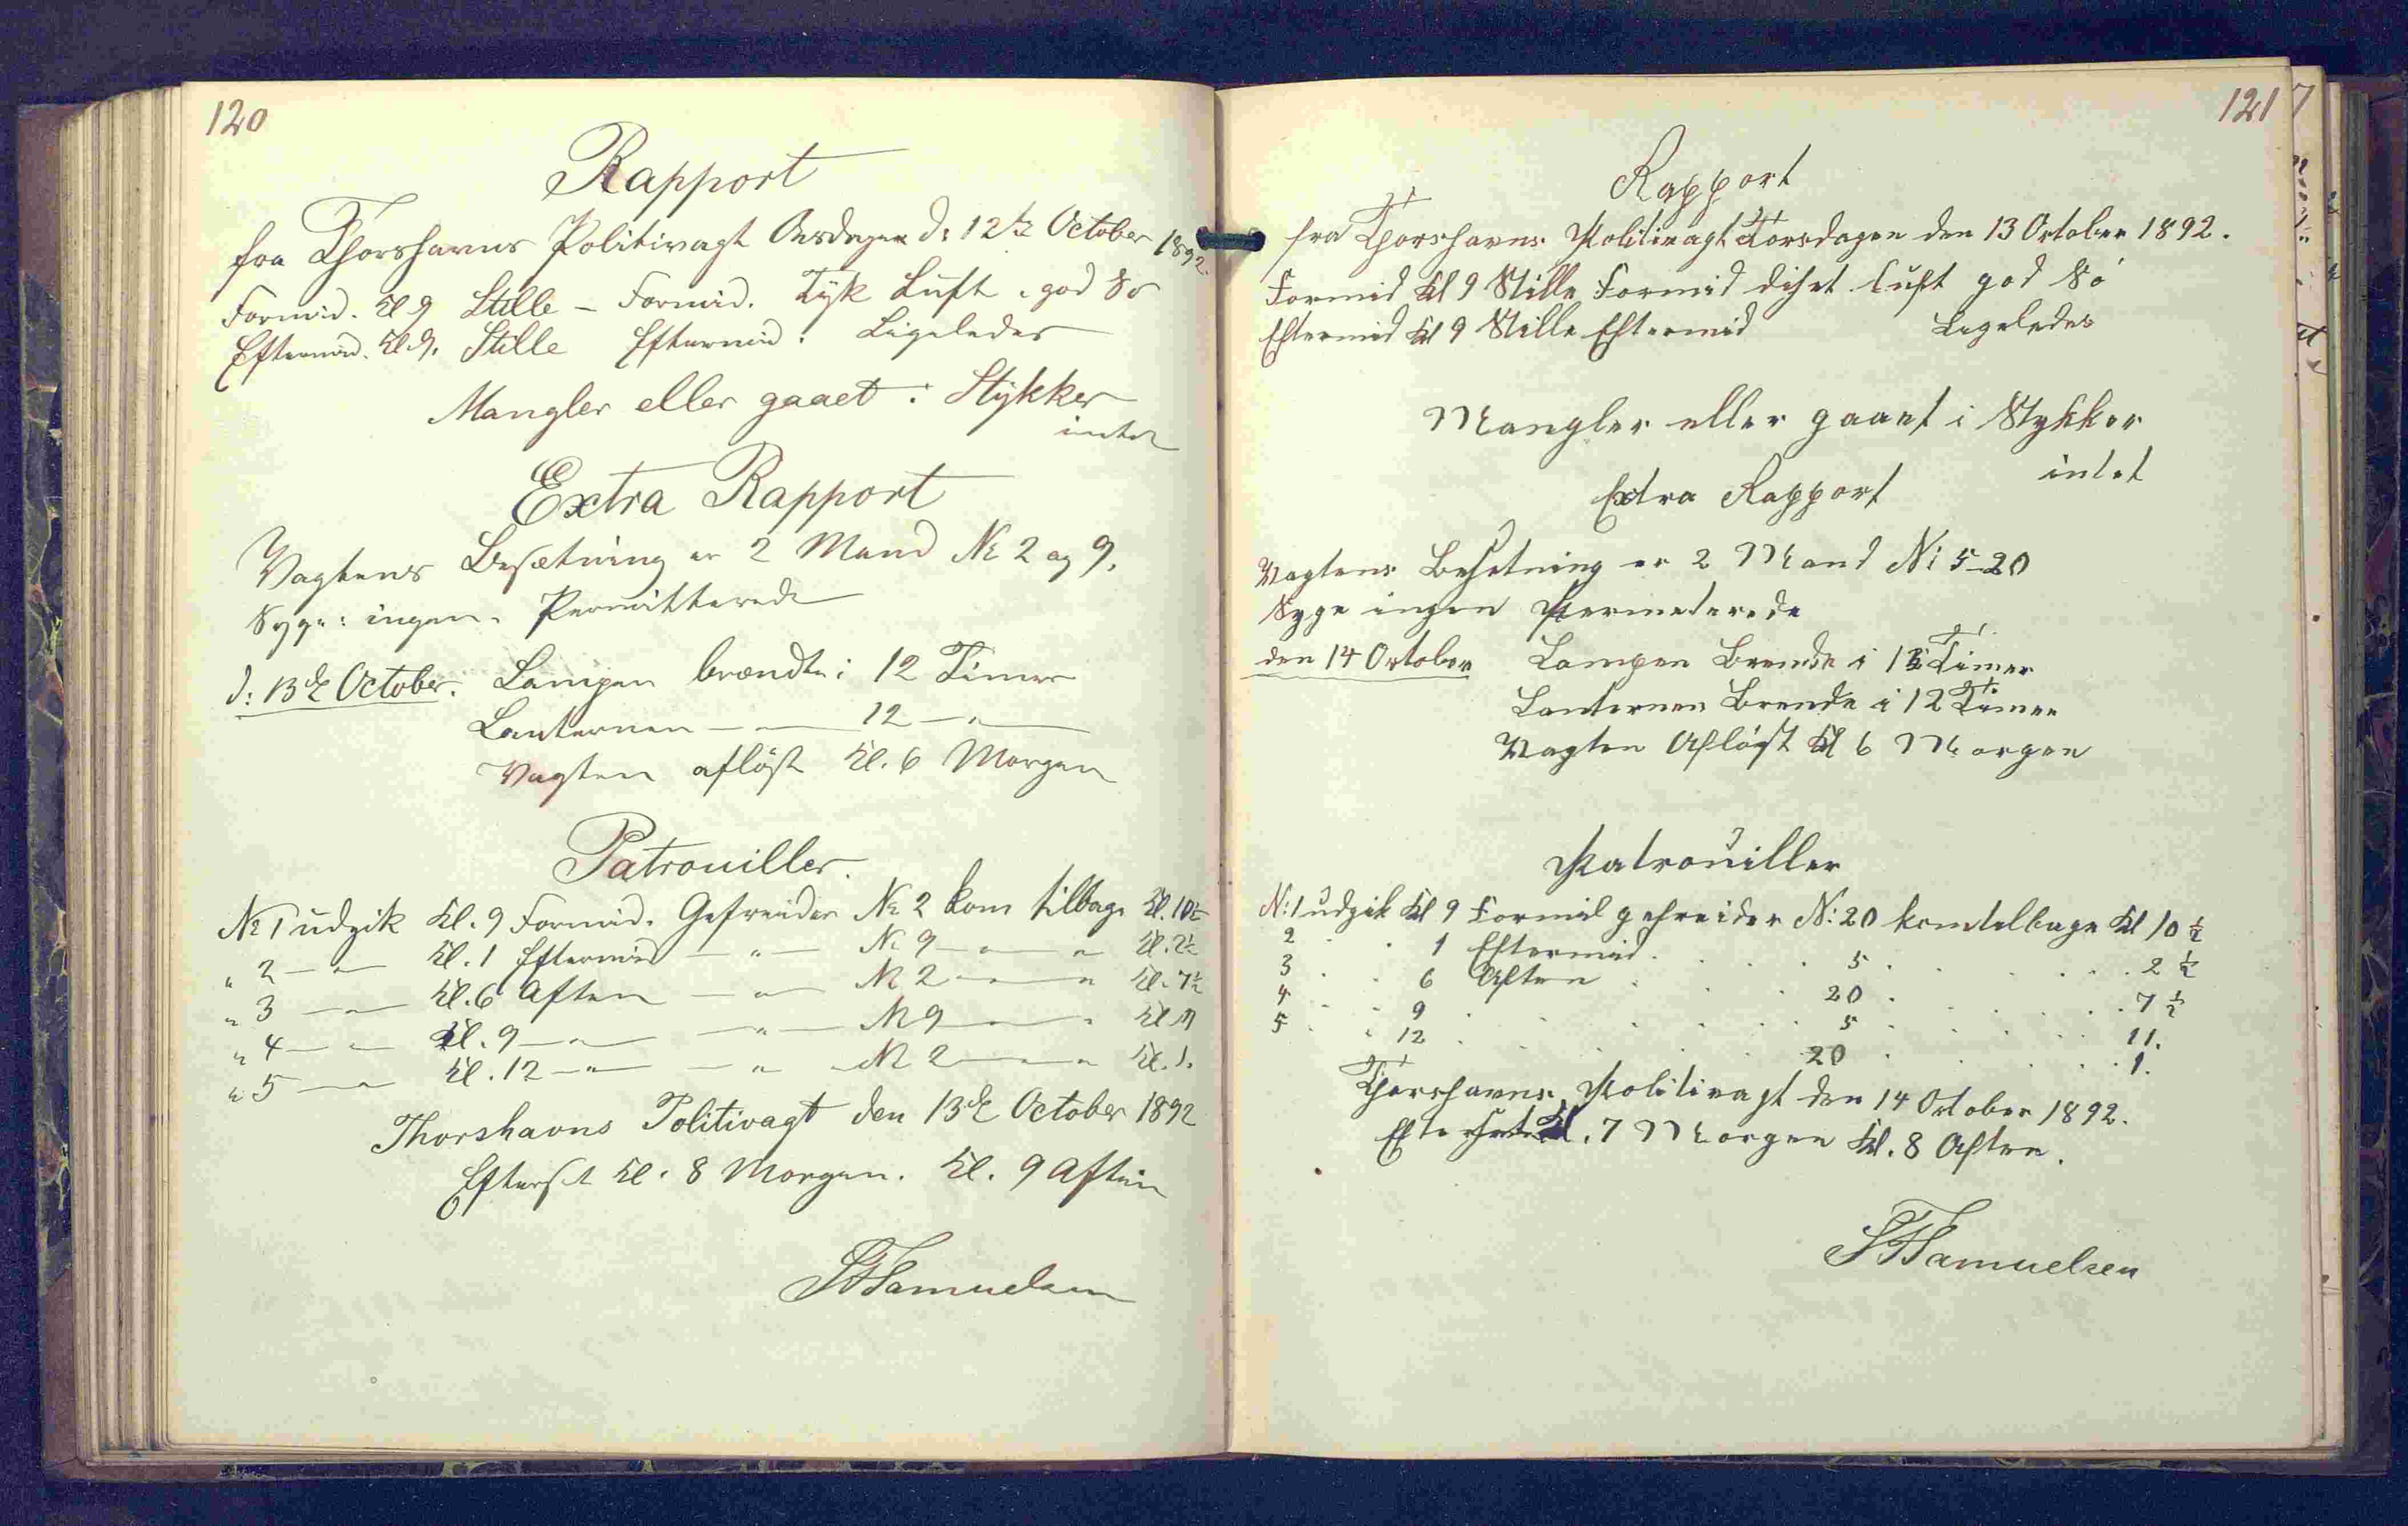 120
Rapport
fra Thorshavns Politivagt Onsdagen d: 12te October 1892.
Formid. Kl 9 Stille – Formid. Tyk Luft, god Sö
Eftermid. Kl. 9. Stille Eftermid. Ligeledes
Mangler eller gaaet i Stykker
intet
Extra Rapport
Vagtens Besætning er 2 Mand No 2 og 9.
Syge: ingen. Permitterede
d: 13de October. Lampen brændte i 12 Timer
Lanternen — " — 12 — " —
Vagten aflöst Kl. 6 Morgen
Patrouiller.
No 1 udgik Kl. 9 Formid. Gefreider No 2 kom tilbage Kl. 10½
" 2 — " — Kl. 1 Eftermid — " — No 9 — " — " Kl. 2½
" 3 — " — Kl. 6 Aften — " — No 2 — " — " Kl. 7½
" 4 — " — Kl. 9 — " — — " — No 9 — " — " Kl 11
" 5 — " — Kl. 12 — " — — " — No 2 — " — " Kl. 1.
Thorshavns Politivagt den 13de October 1892
Efterset Kl. 8 Morgen. Kl. 9 Aften
Samuelsen
121
Rapport
fra Thorshavns Politivagt Torsdagen den 13 October 1892.
Formid Kl 9 Stille Formid diset Luft god Sö
Eftermid Kl 9 Stille Eftermid Legeledes
Mangler eller gaaet i Stykker
intet
Extra Rapport
Vagtens Besetning er 2 Mand N: 5-20
Syge ingen Permeterede
den 14 October Lampen Brende i 12 Timer
Lanternen Brende i 12 Timer
Vagten Aflöst Kl 6 Morgen
Patrouiller
N: 1 udgik Kl 9 Formid gefreider N: 20 kom telbage Kl 10 ½
2 . . 1 Eftermid . . . 5 . . . . 2 ½
3 . . 6 Aften . . . 20 . . . . 7 ½
4 . . 9 . . . . 5 . . . . 11.
5 . . 12 . . . . 20 . . . . 1.
Thorshavns Politivagt den 14 October 1892.
Efterset Kl. 7 Morgen Kl. 8 Aften.
Samuelsen